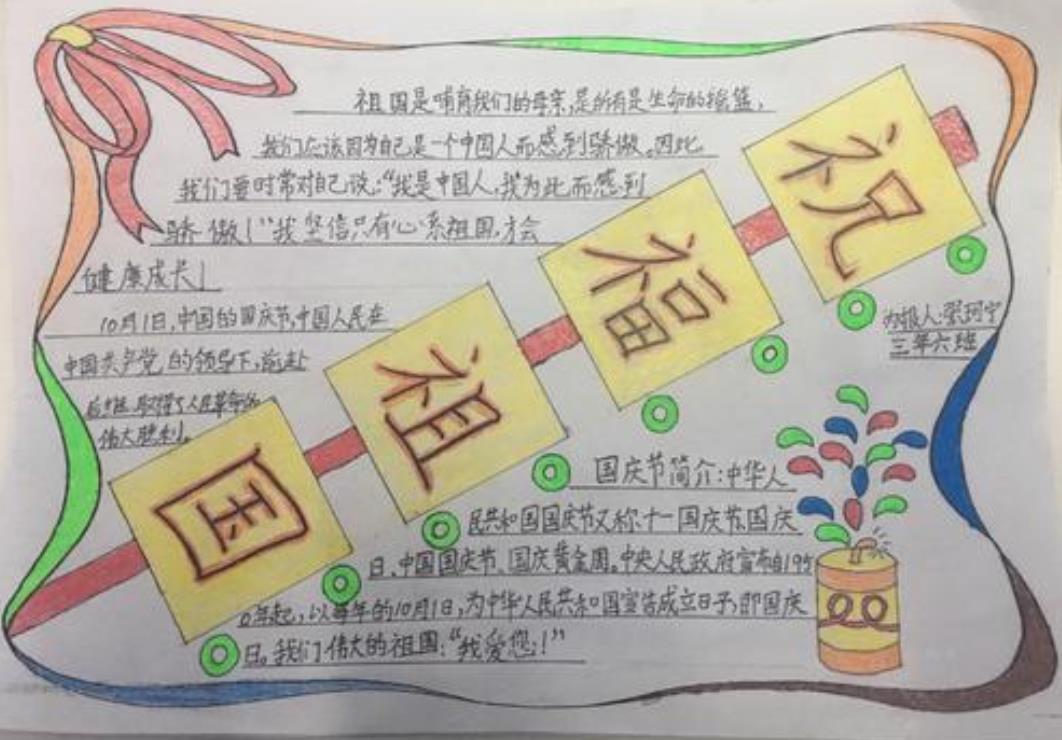 祖国是哺育我们的母亲,是所有是生命的摇篮,
我们应该因为自己是一个中国人而感到骄傲。因此
我们要时常对自己说:“我是中国人,我为此而感到
骄傲!”我坚信只有心系祖国,才会
健康成长!
10月1日,中国的国庆节,中国人民在
中国共产党的领导下,前赴
后继,取得了人民革命的
伟大胜利。
祝
福
祖
国
办报人:张珂宁
三年六班
国庆节简介:中华人
民共和国国庆节又称、十一国庆节、国庆
日、中国国庆节、国庆黄金周。中央人民政府宣布自195
0年起,以每年的10月1日,为中华人民共和国宣告成立日子,即国庆
日。我们伟大的祖国:“我爱您!”